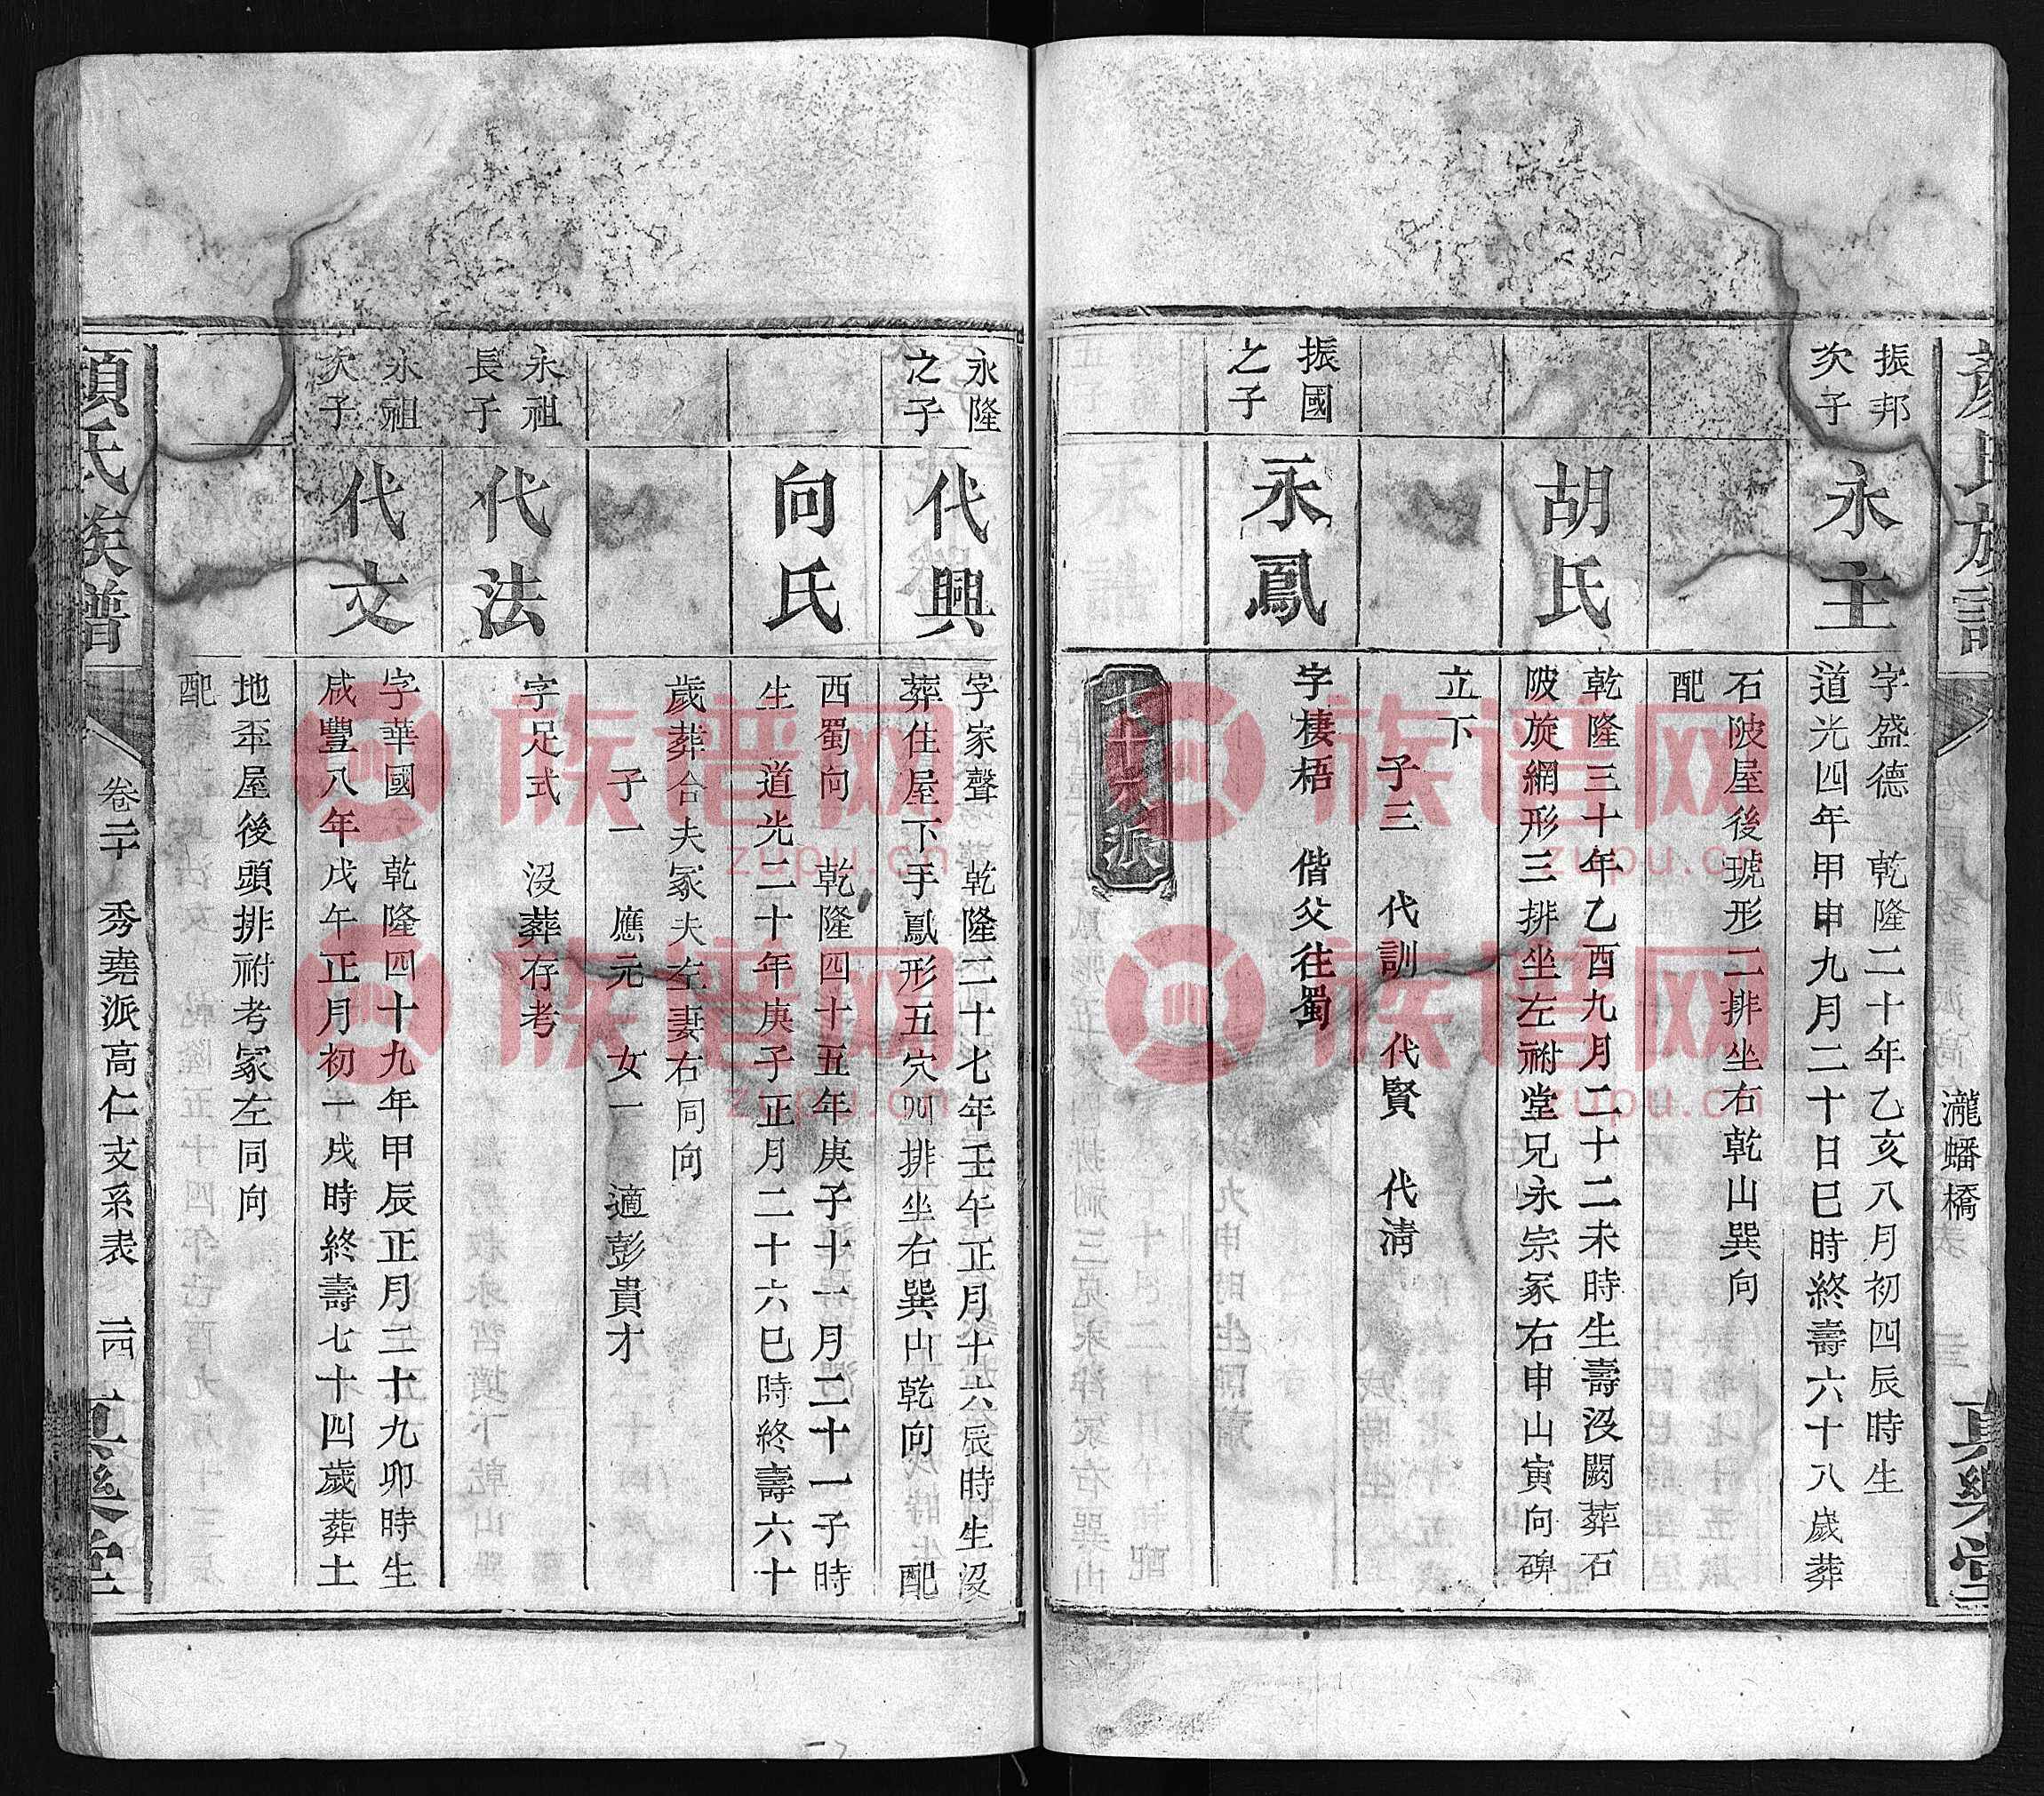 顏氏族譜
瀧蟠橋
真樂堂
振邦
次子
永主
字盛德 乾隆二十年乙亥八月初四辰時生
道光四年甲申九月二十日巳時終壽六十八歲葬
石陂屋後琥形二排坐右乾山巽向
配
胡氏
乾隆三十年乙酉九月二十二未時生壽沒闕葬石
陂旋網形三排坐左祔堂兄永宗冢右申山寅向碑
立下
子三 代訓 代賢 代淸
振國
之子
永鳳
字棲梧 偕父往蜀
派
永隆
之子
代興
字家聲 乾隆二十七年壬午正月十六辰時生沒
葬住屋下手鳳形五穴四排坐右巽山乾向 配
向氏
西蜀向 乾隆四十五年庚子十一月二十一子時
生 道光二十年庚子正月二十六巳時終壽六十
歲葬合夫冢夫左妻右同向
子一 應元 女一 適彭貴才
永祖
長子
代法
字足式 沒葬存考
永祖
次子
代文
字華國 乾隆四十九年甲辰正月二十九卯時生
咸豐八年戊午正月初一戌時終壽七十四歲葬土
地坪屋後頭排祔考冢左同向
配
顏氏族譜
卷二十 秀堯派高仁支系表 二十四
真樂堂
族谱网
zupu.cn
族谱网
zupu.cn
族谱网
zupu.cn
族谱网
zupu.cn